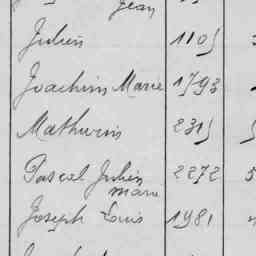 Jean
Julien 1105
Joachim Marie 1793
Mathurin 2315
Pascal Julien 2272 5
Marie
Joseph Louis 1981